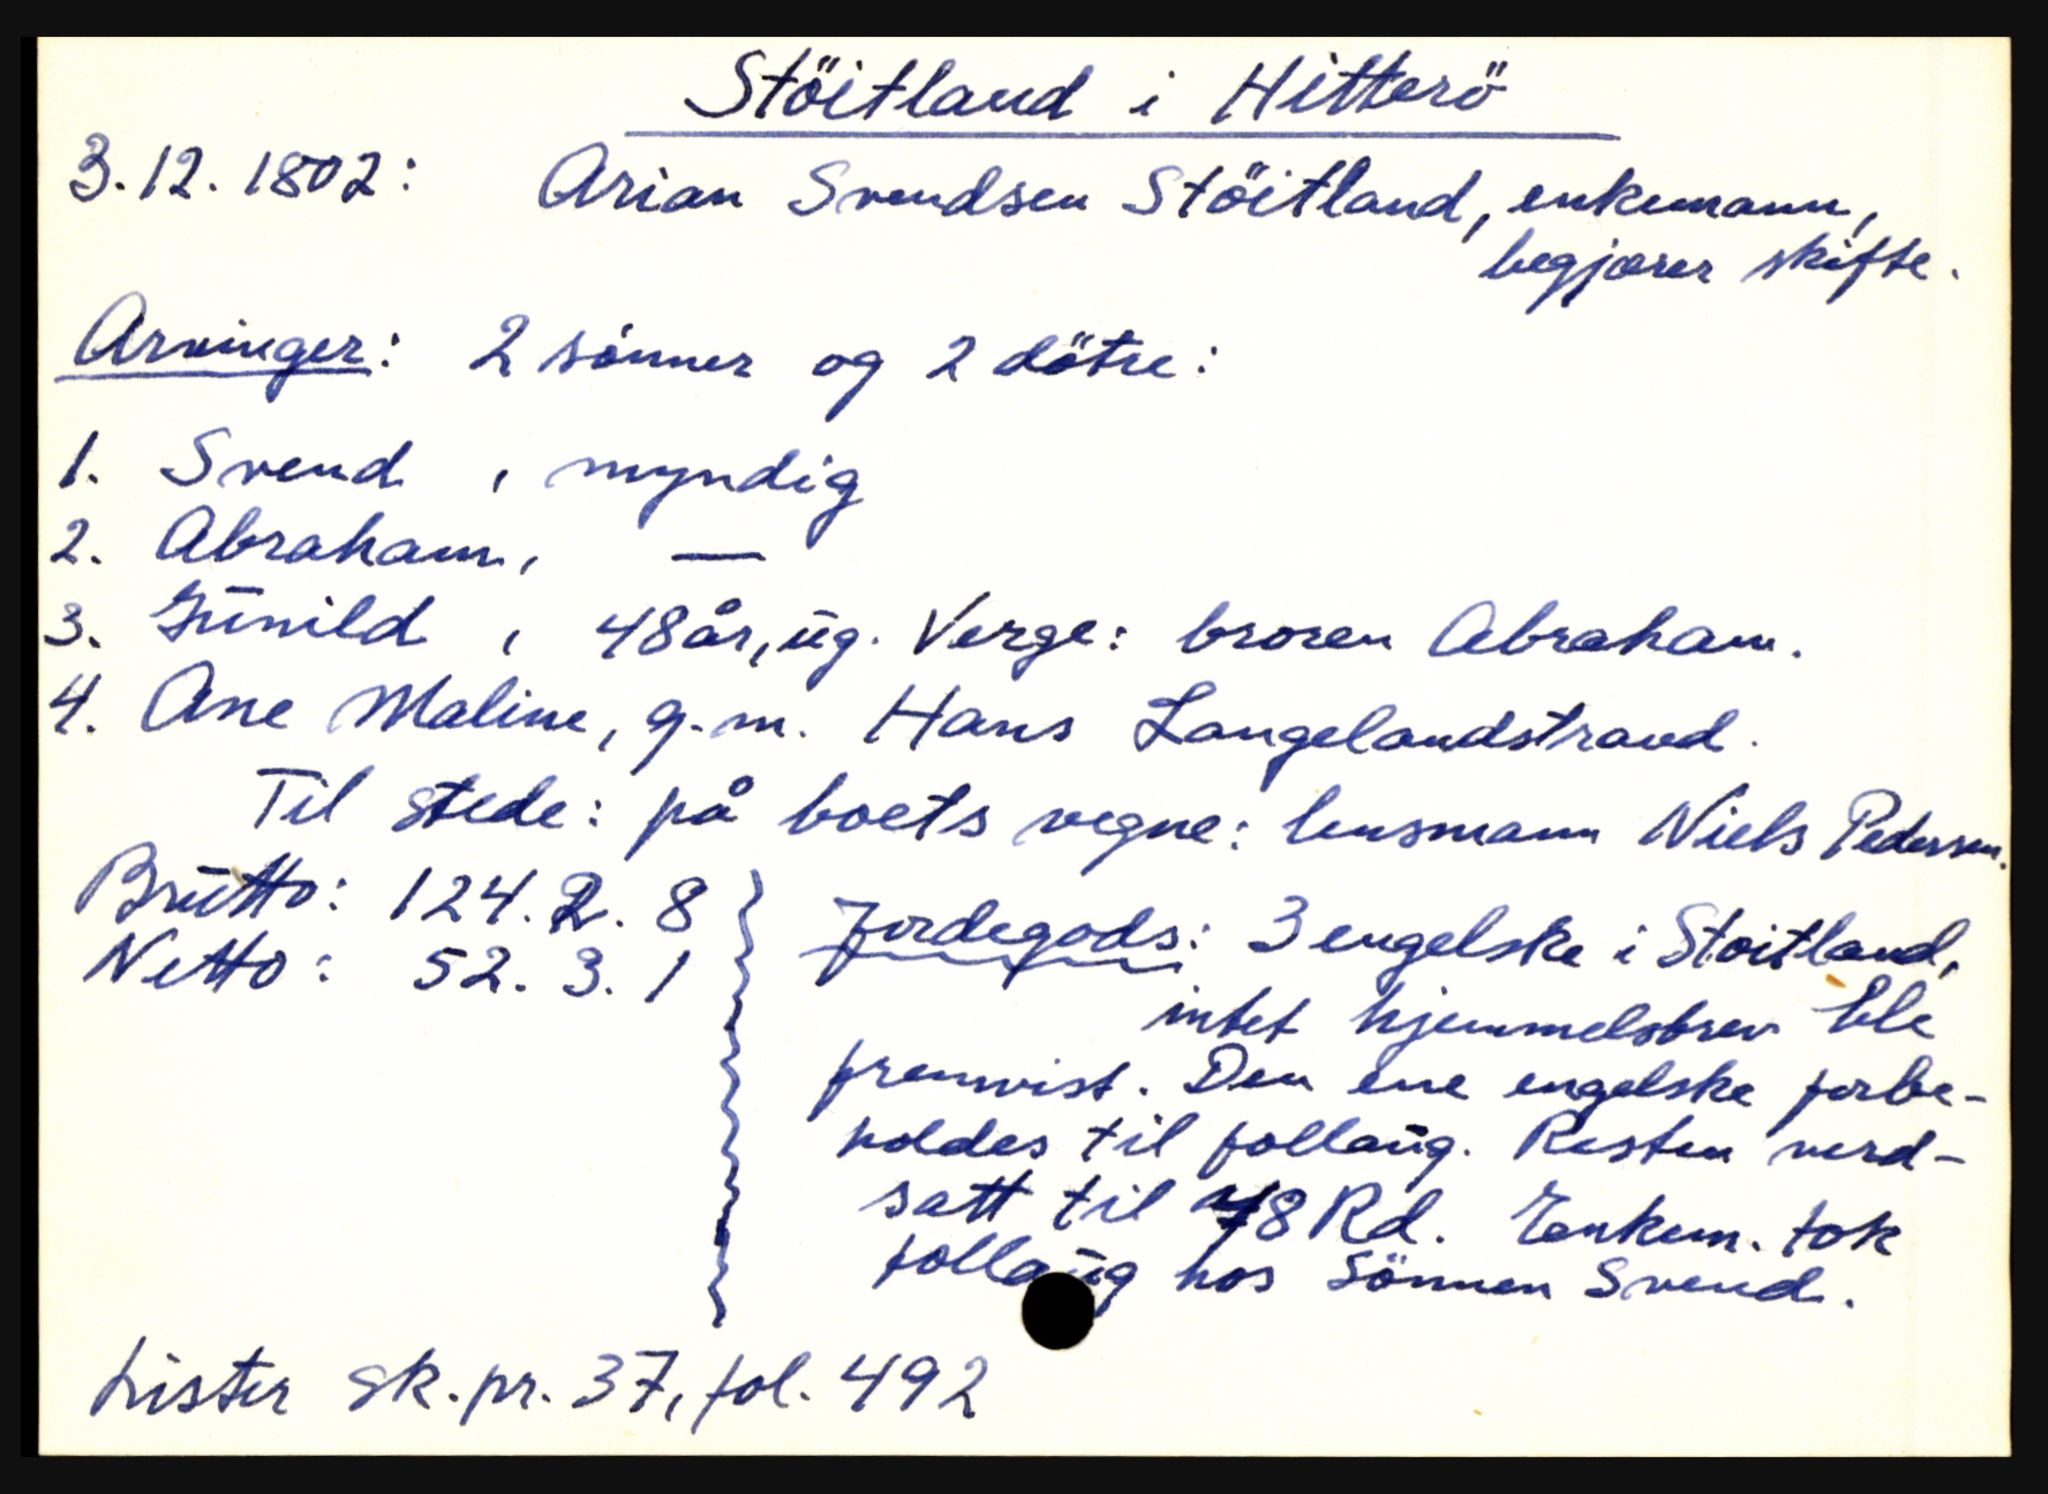 Stöitland i Hitterö
3.12.1802: Arian Svendsen Stöitland, enkemann,
begjærer skifte.
Arvinger: 2 sönner og 2 dötre:
1. Svend , myndig
2. Abraham, —
3. Gūnild , 48 år, ūg. Verge: broren Abraham.
4. Ane Maline, g.m. Hans Langelandstrand.
Til stede: på boets vegne: lensmann Niels Pedersen.
Brūtto: 124. 2. 8
Netto: 52. 3. 1
Jordegods: 3 engelske i Stoitland,
intet hjemmelsbrev ble
fremvist. Den ene engelske forbe-
holdes til follaūg. Resten verd-
satt til 48 Rd. Enkem. tok
follaūg hos Sönnen Svend.
Lister sk.pr. 37, fol. 492